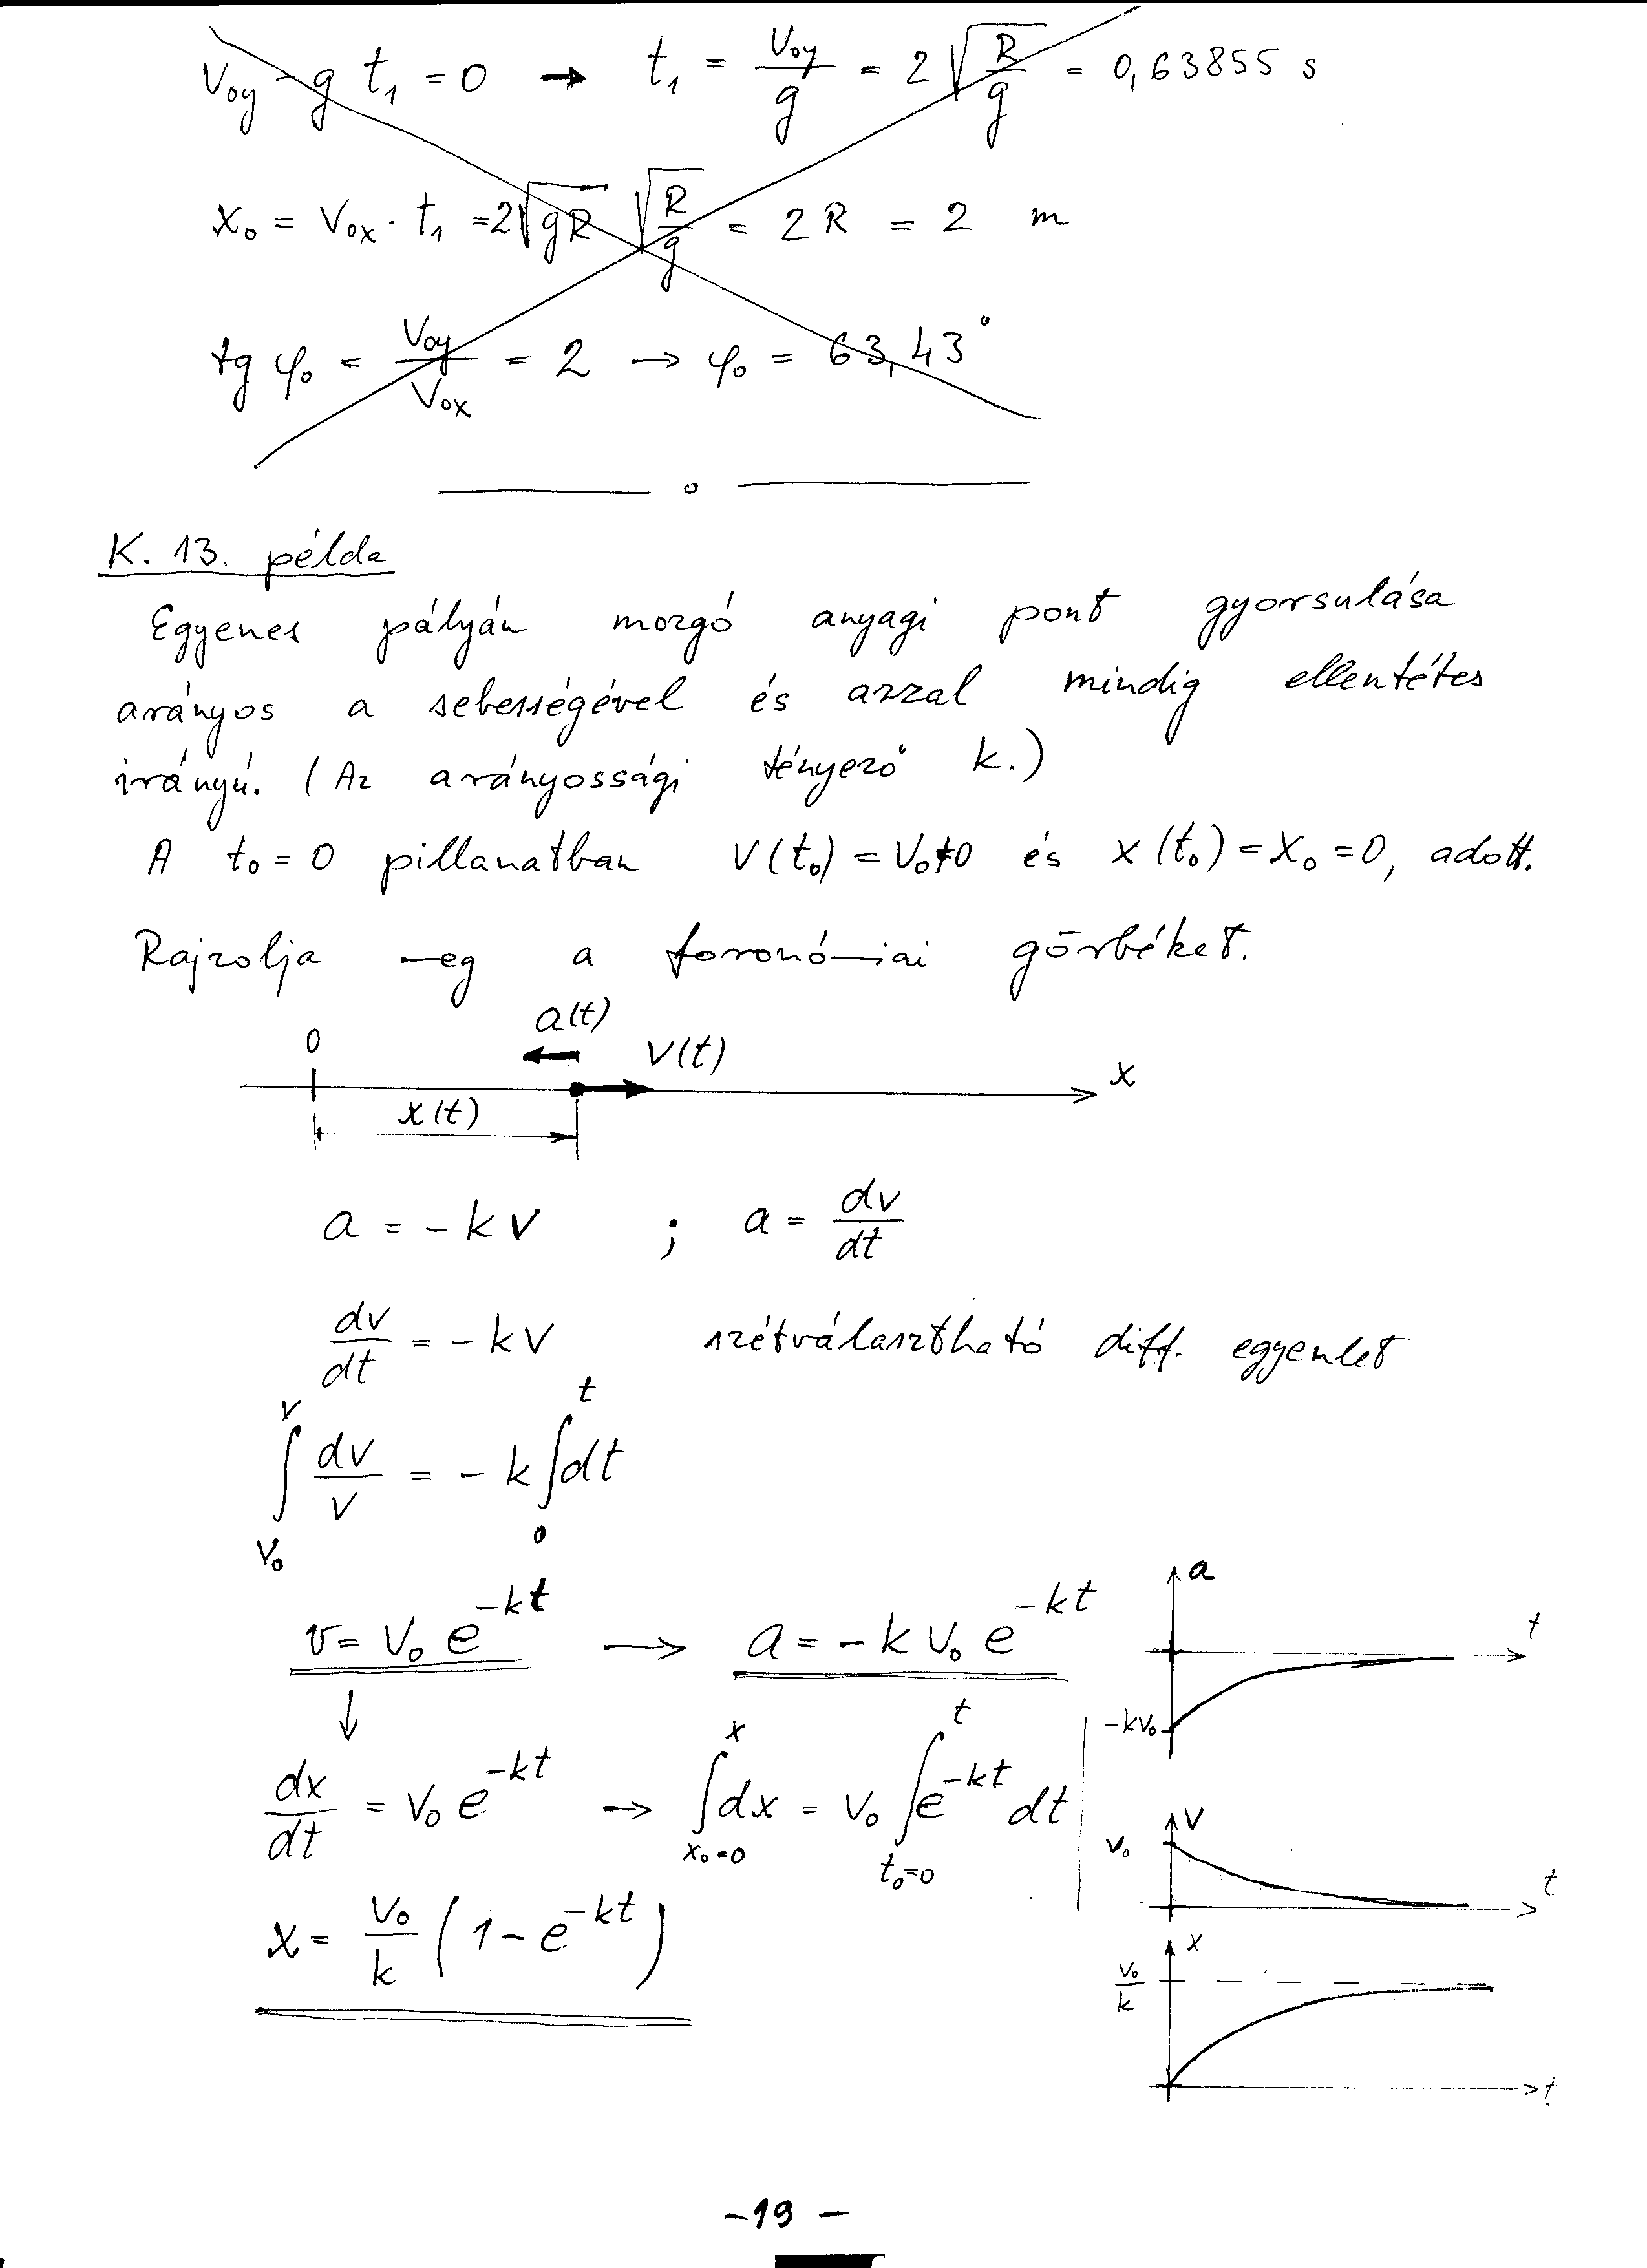 v₀y - g t₁ = 0 → t₁ = v₀y/g = 2√(R/g) = 0,63855 s
x₀ = v₀x · t₁ = 2√(gR) √(R/g) = 2R = 2 m
tg φ₀ = v₀y/v₀x = 2 → φ₀ = 63,43°
K. 13. példa
Egyenes pályán mozgó anyagi pont gyorsulása
arányos a sebességével és azzal mindig ellentétes
irányú. (Az arányossági tényező k.)
A t₀ = 0 pillanatban v(t₀) = v₀ ≠ 0 és x(t₀) = x₀ = 0, adott.
Rajzolja meg a foronómiai görbéket.
a(t)
0 v(t)
x
x(t)
a = -kv ; a = dv/dt
dv/dt = -kv szétválasztható diff. egyenlet
∫_{v₀}^{v} dv/v = -k ∫_{0}^{t} dt
v = v₀ e^{-kt} → a = -k v₀ e^{-kt}
↓
dx/dt = v₀ e^{-kt} → ∫_{x₀=0}^{x} dx = v₀ ∫_{t₀=0}^{t} e^{-kt} dt
x = v₀/k (1 - e^{-kt})
a
t
-kv₀
v
v₀
t
x
v₀/k
t
-19-